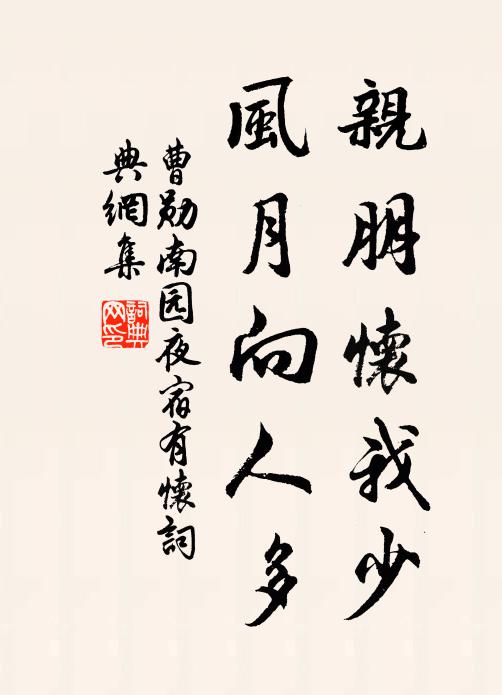 親朋懷我少
風月向人多
曹勛南园夜宿有懷詞
典網集
詞典
网印